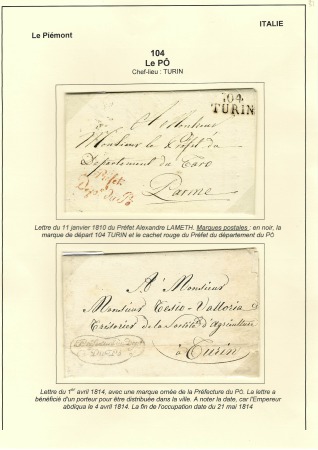 ITALIE
Le Piémont
104
Le PÔ
Chef-lieu : TURIN
104
TURIN
A Monsieur
Monsieur le Préfet du
Département du Taro
Parme
Préfet
du Pô
Lettre du 11 janvier 1810 du Préfet Alexandre LAMETH. Marques postales : en noir, la
marque de départ 104 TURIN et le cachet rouge du Préfet du département du Pô
A Monsieur
Monsieur Tesio-Vattoria
Trésorier de la Société d'Agriculture
à Turin
Lettre du 1er avril 1814, avec une marque ornée de la Préfecture du Pô. La lettre a
bénéficié d'un porteur pour être distribuée dans la ville. A noter la date, car l'Empereur
abdiqua le 4 avril 1814. La fin de l'occupation date du 21 mai 1814